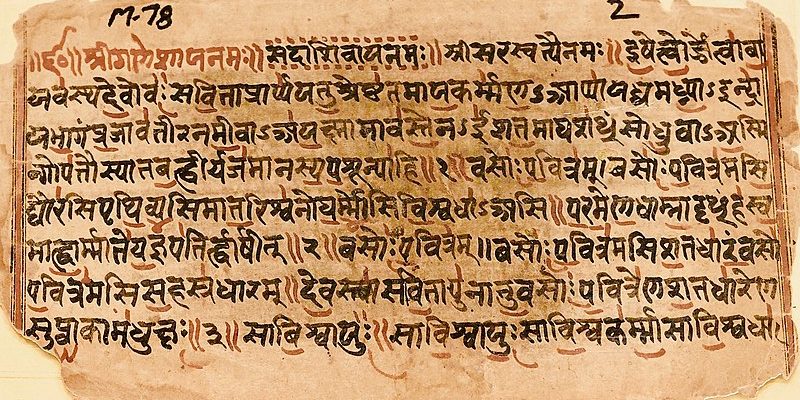 M-78 2
॥६०॥ श्रीगणेशायनमः॥ सदाशिवायनमः॥ श्रीसरस्वत्यैनमः॥ इषेत्वोर्ज्जेत्वावा
यवस्थदेवोवः सवितात्रार्प्पयतुश्रेष्ठतमायकर्म्मणऽआप्यायध्वमघ्न्याऽइन्द्रा
यभागंप्रजावतीरनमीवाऽअयक्ष्मामावस्तेनऽईशतमाघशᳪसोध्रुवाऽअस्मि
न्गोपतौस्यातबह्वीर्यजमानस्यपशून्पाहि॥१॥ वसोःपवित्रम्॥ वसोःपवित्रमसि
द्यौरसिपृथिव्यसिमातरिश्वनोघर्म्मोसिविश्वधाऽअसि॥ परमेणधाम्नादृᳪहस्व
माह्वार्म्मातेयज्ञपतिर्ह्वार्षीत्॥२॥ वसोःपवित्रम्॥ वसोःपवित्रमसिशतधारंवसोः
पवित्रमसिसहस्रधारम्॥ देवस्त्वासवितापुनातुवसोःपवित्रेणशतधारेण
सुप्वाकामधुक्षः॥३॥ साविश्वायुः॥ साविश्वायुःसाविश्वकर्म्मासाविश्वधा